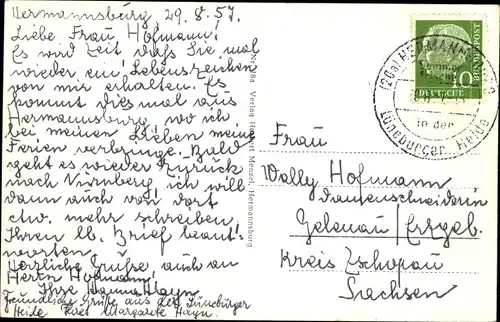 Hermannsburg 29.8.57.
Liebe Frau Hofmann!
Es wird Zeit daß Sie mal
wieder ein Lebenszeichen
von mir erhalten. Es
kommt dies mal aus
Hermannsburg, wo ich
bei meinen Lieben meine
Ferien verbringe. Bald
geht es wieder zurück
nach Nürnberg, ich will
dann auch von dort
etw. mehr schreiben,
Ihren lb. Brief beant-
worten.
Herzliche Grüße, auch an
Herrn Hofmann!
Ihre Hanna Hayn
Freundliche Grüße aus der Lüneburger
Heide Ihre Margarete Hayn.
Verlag Menzel, Hermannsburg
DEUTSCHE
BUNDESPOST
10
(20a) HERMANNSBURG
in der
Lüneburger Heide
Frau
Wally Hofmann
Damenschneiderin
Gelenau / Erzgeb.
Kreis Zschopau
Sachsen